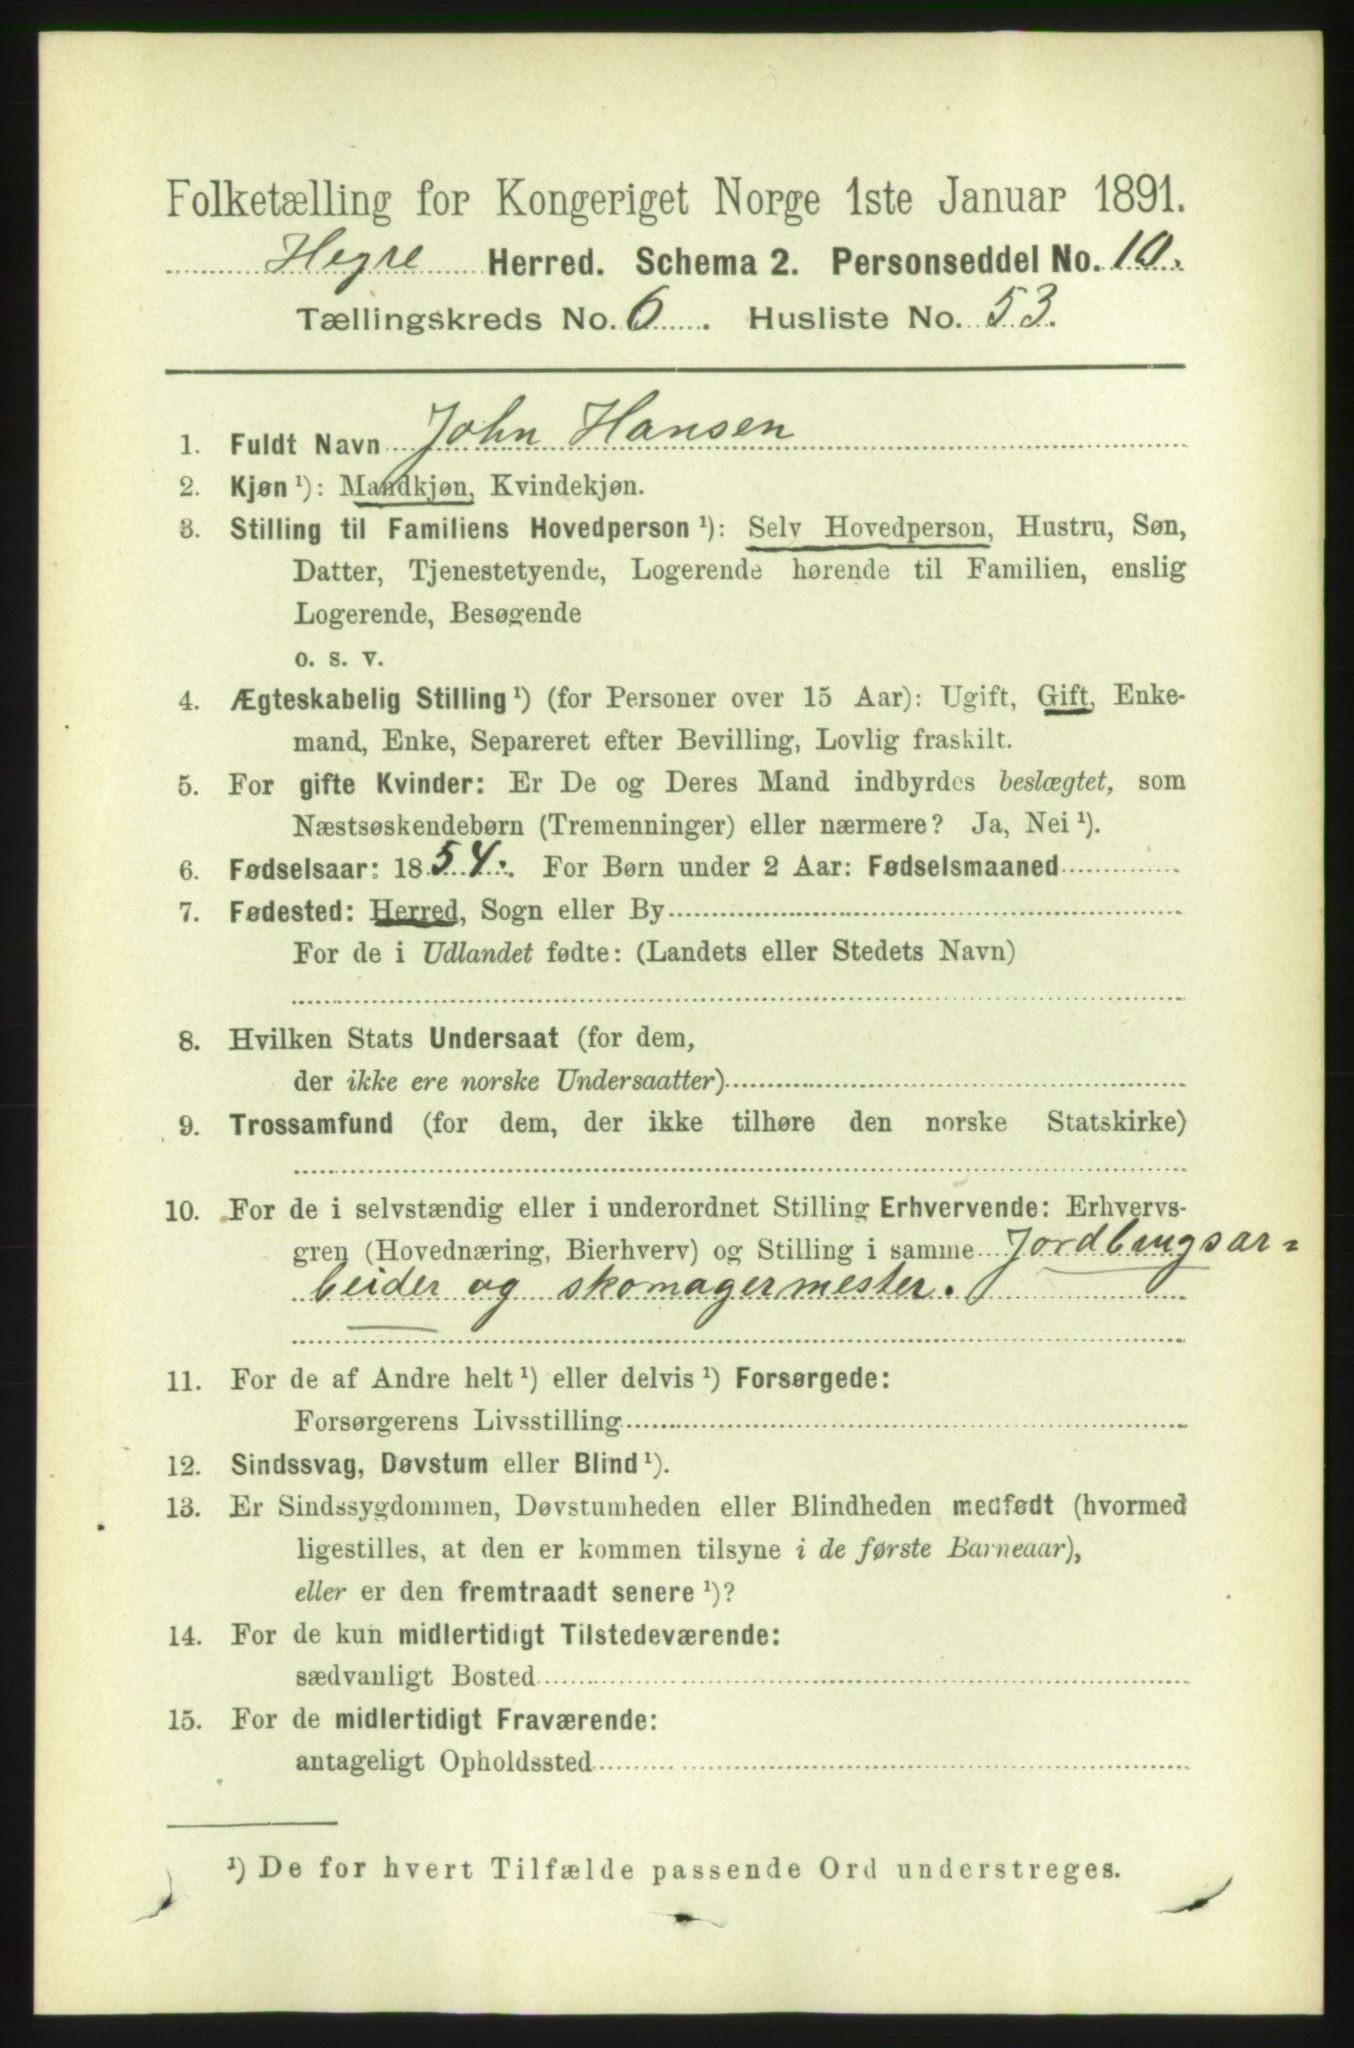 Folketælling for Kongeriget Norge 1ste Januar 1891.
Hegre Herred. Schema 2. Personseddel No. 10.
Tællingskreds No. 6. Husliste No. 53.
1. Fuldt Navn John Hansen
2. Kjøn ¹): Mandkjøn, Kvindekjøn.
3. Stilling til Familiens Hovedperson ¹): Selv Hovedperson, Hustru, Søn,
Datter, Tjenestetyende, Logerende hørende til Familien, enslig
Logerende, Besøgende
o. s. v.
4. Ægteskabelig Stilling ¹) (for Personer over 15 Aar): Ugift, Gift, Enke-
mand, Enke, Separeret efter Bevilling, Lovlig fraskilt.
5. For gifte Kvinder: Er De og Deres Mand indbyrdes beslægtet, som
Næstsøskendebørn (Tremenninger) eller nærmere? Ja, Nei ¹).
6. Fødselsaar: 1854. For Børn under 2 Aar: Fødselsmaaned
7. Fødested: Herred, Sogn eller By
For de i Udlandet fødte: (Landets eller Stedets Navn)
8. Hvilken Stats Undersaat (for dem,
der ikke ere norske Undersaatter)
9. Trossamfund (for dem, der ikke tilhøre den norske Statskirke)
10. For de i selvstændig eller i underordnet Stilling Erhvervende: Erhvervs-
gren (Hovednæring, Bierhverv) og Stilling i samme Jordbrugsar=
beider og skomagermester.
11. For de af Andre helt ¹) eller delvis ¹) Forsørgede:
Forsørgerens Livsstilling
12. Sindssvag, Døvstum eller Blind ¹).
13. Er Sindssygdommen, Døvstumheden eller Blindheden medfødt (hvormed
ligestilles, at den er kommen tilsyne i de første Barneaar),
eller er den fremtraadt senere ¹)?
14. For de kun midlertidigt Tilstedeværende:
sædvanligt Bosted
15. For de midlertidigt Fraværende:
antageligt Opholdssted
¹) De for hvert Tilfælde passende Ord understreges.